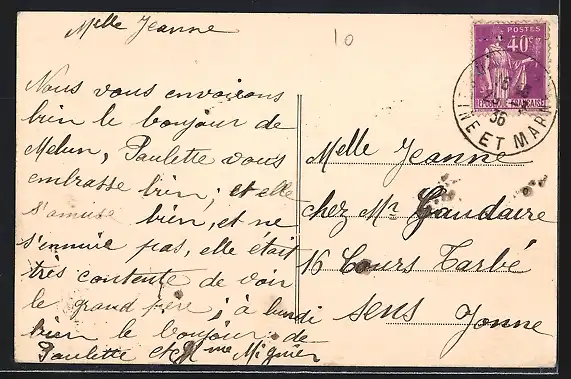 Melle Jeanne
10
Nous vous envoyons
bien le bonjour de
Melun, Paulette vous
embrasse bien; et elle
s'amuse bien, et ne
s'ennuie pas, elle était
très contente de voir
le grand père; à lundi
bien le bonjour de
Paulette et Mme Mignier
POSTES
40c
REPUBLIQUE FRANÇAISE
36
NE ET MARN
Melle Jeanne
chez Mr Gaudaire
16 Cours Tarbé
Sens Yonne